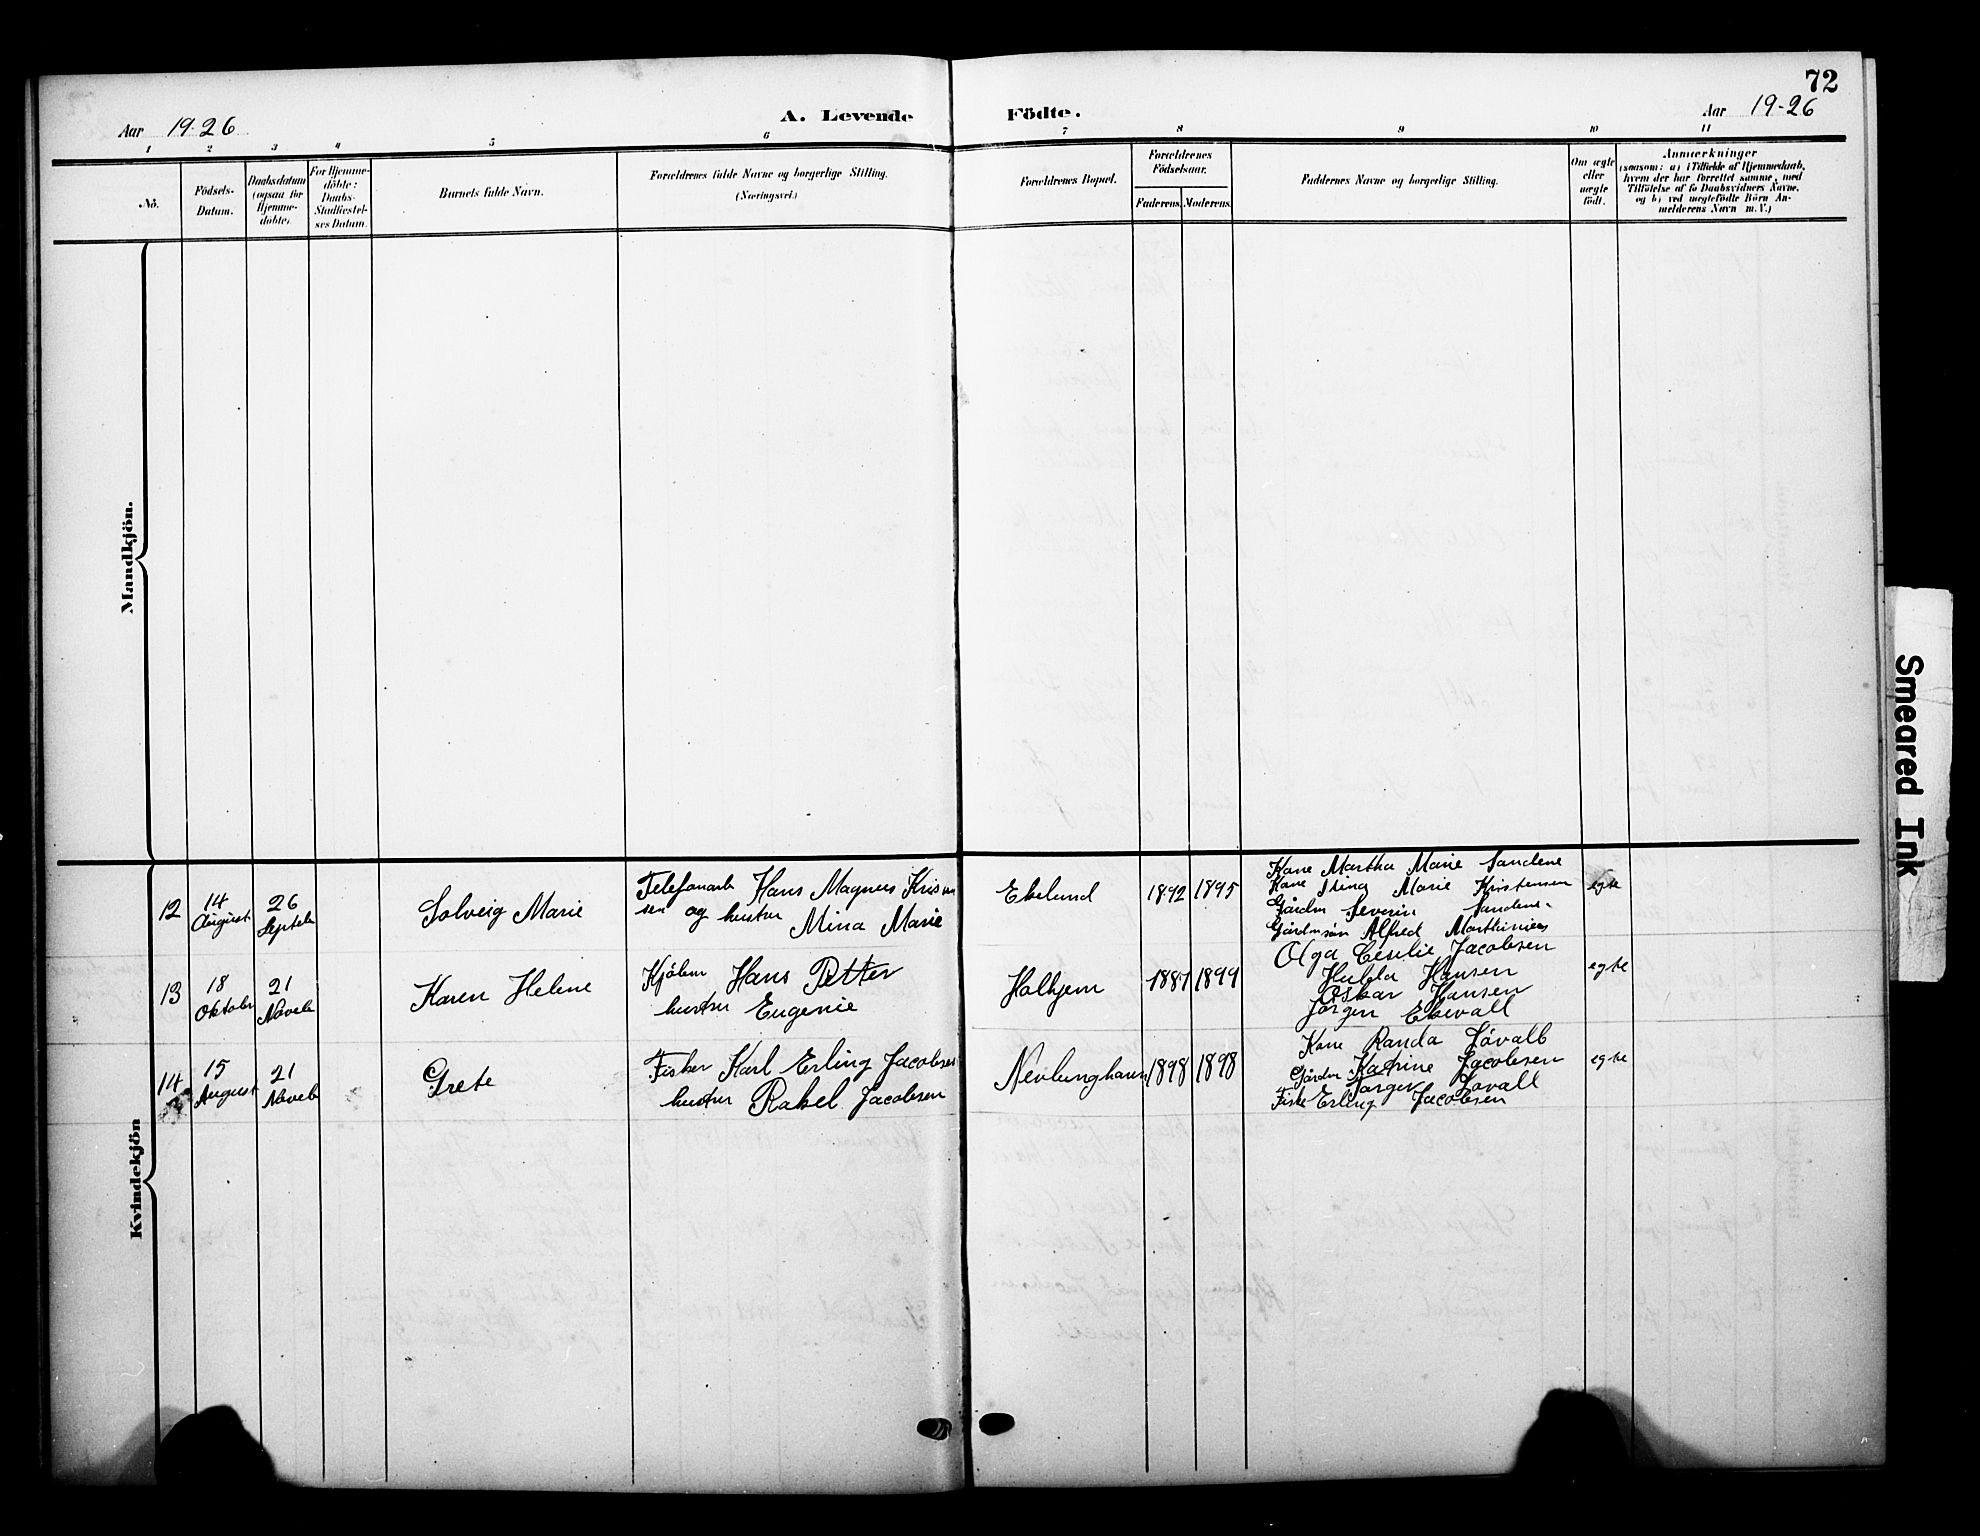 72
Aar 19-26
A. Levende Födte.
Aar 19-26
1 2 3 4 5 6 7 8 9 10 11
No.
Födsels-
Datum.
Daabsdatum
(ogsaa for
Hjemme-
döbte).
For Hjemme-
döbte:
Daabs-
Stadfæstel-
ses Datum.
Barnets fulde Navn.
Forældrenes fulde Navne og borgerlige Stilling.
(Næringsvei.)
Forældrenes Bopæl.
Forældrenes
Födselsaar.
Faderens.
Moderens.
Faddernes Navne og borgerlige Stilling.
Om ægte
eller
uægte
født.
Anmærkninger
(saasom: a) i Tilfælde af Hjemmedaab,
hvem der har forrettet samme, med
Tilföielse af to Daabsvidners Navne,
og b) ved uægtefödte Börn An-
melderens Navn m.V.)
Mandkjön.
Kvindekjön
12
14
August
26
Septeb
Solveig Marie
Telefonarb Hans Magnus Kris
sen og hustru
Mina Marie
Ekelund
1892
1895
Kone Martha Marie Sandene
Kone Mina Marie Kristensen
Gårdbr Severin Sandene.
Gårdmsön Alfred Marthinius
egte
13
18
Oktober
21
Noveb
Karen Helene
Hans Petter
hustru Eugenie
Halhjem
1887
1899
Olga Cecilie Jacobsen
Hulda Hansen
Oskar Hansen
Jörgen Ekevall
egte
14
15
August
21
Noveb
Grete
Fisker Karl Erling Jacobsen
hustru Rakel Jacobsen
Nevlunghavn
1898
1898
Kone Randa Lövall
Gårdbr Katrine Jacobsen
Jörgen Lövall
Fiske Erling Jacobsen
egte
Smeared Ink